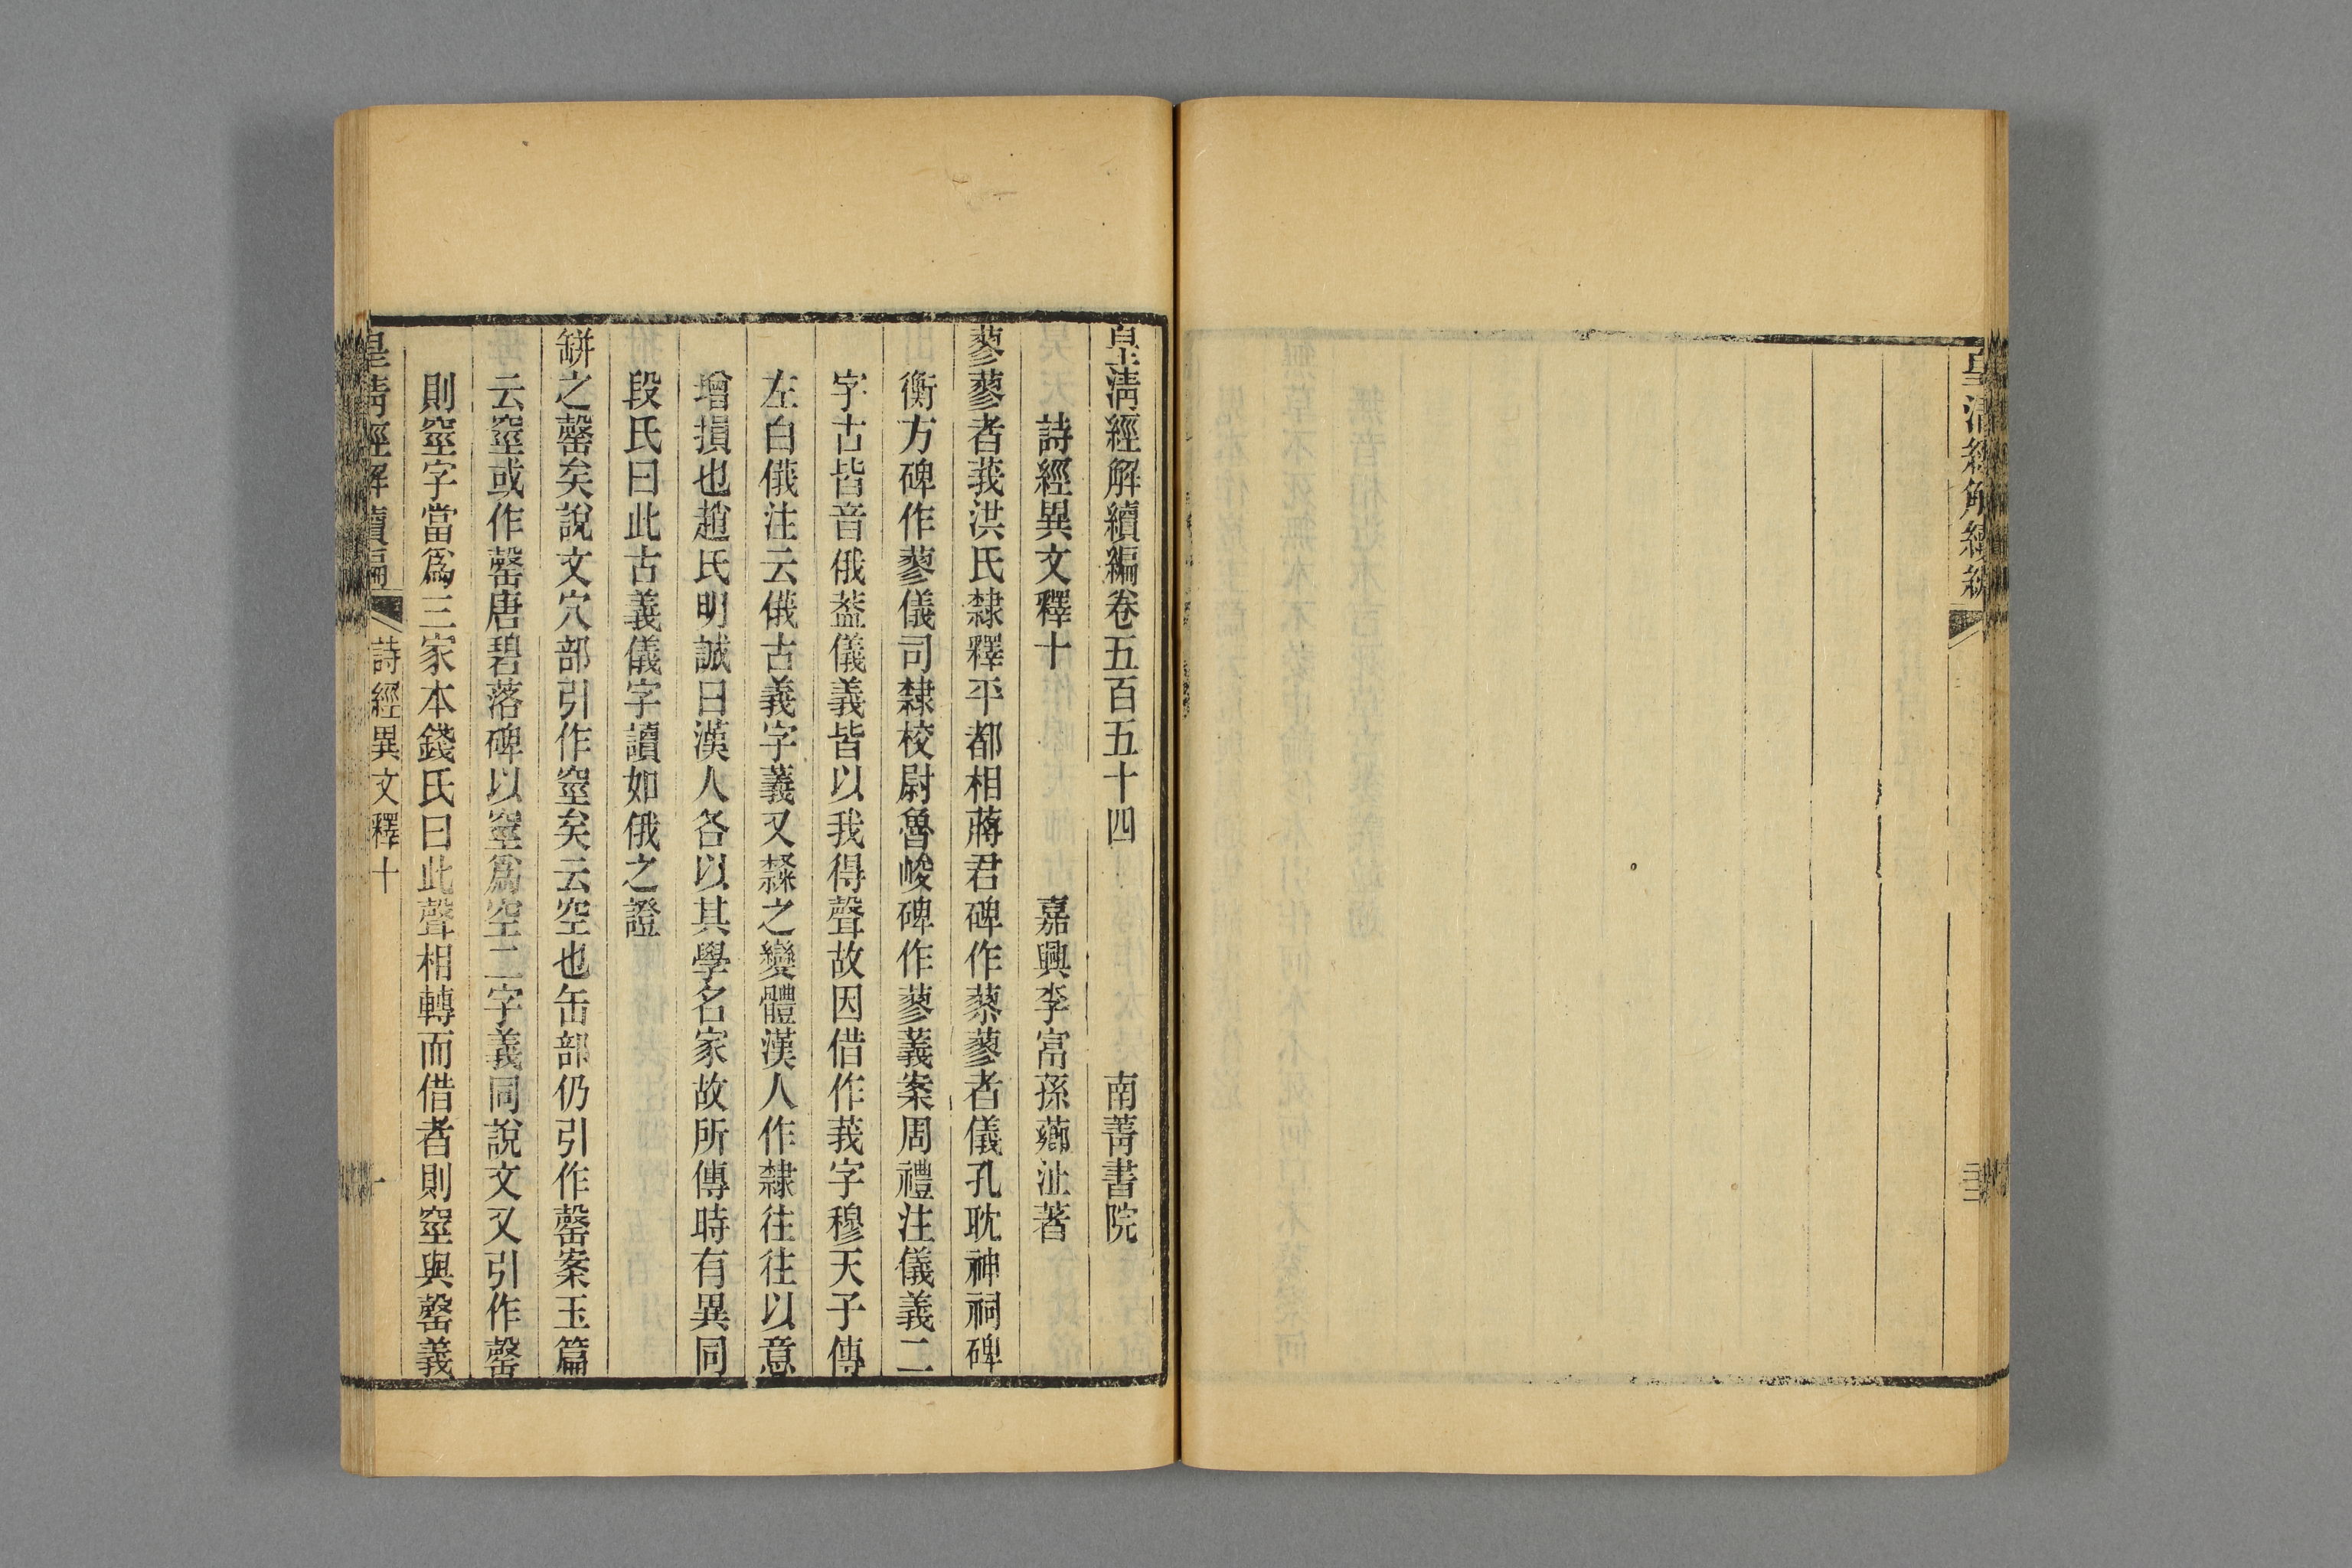 皇清經解續編
皇清經解續編卷五百五十四
南菁書院
詩經異文釋十
嘉興李富孫薌沚著
蓼蓼者莪洪氏隸釋平都相蔣君碑作蓼蓼者儀孔耽神祠碑
衡方碑作蓼儀司隸校尉魯峻碑作蓼義案周禮注儀義二
字古皆音俄葢儀義皆以我得聲故因借作莪字穆天子傳
左白俄注云俄古義字義又䔣之變體漢人作隸往往以意
增損也趙氏明誠曰漢人各以其學名家故所傳時有異同
段氏曰此古義儀字讀如俄之證
缾之罄矣說文穴部引作窒矣云空也缶部仍引作罄案玉篇
云窒或作罄唐碧落碑以窒爲空二字義同說文又引作罄
則窒字當爲三家本錢氏曰此聲相轉而借者則窒與罄義
皇清經解續編
詩經異文釋十
一